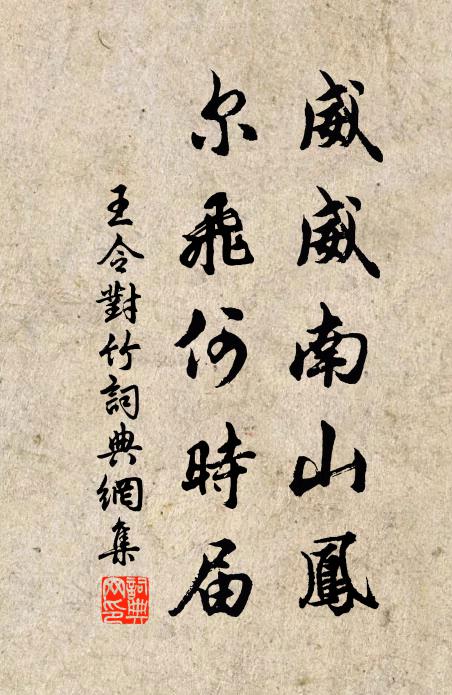 威威南山鳳
尔飛何時届
王令對竹詞典網集
詞典网印